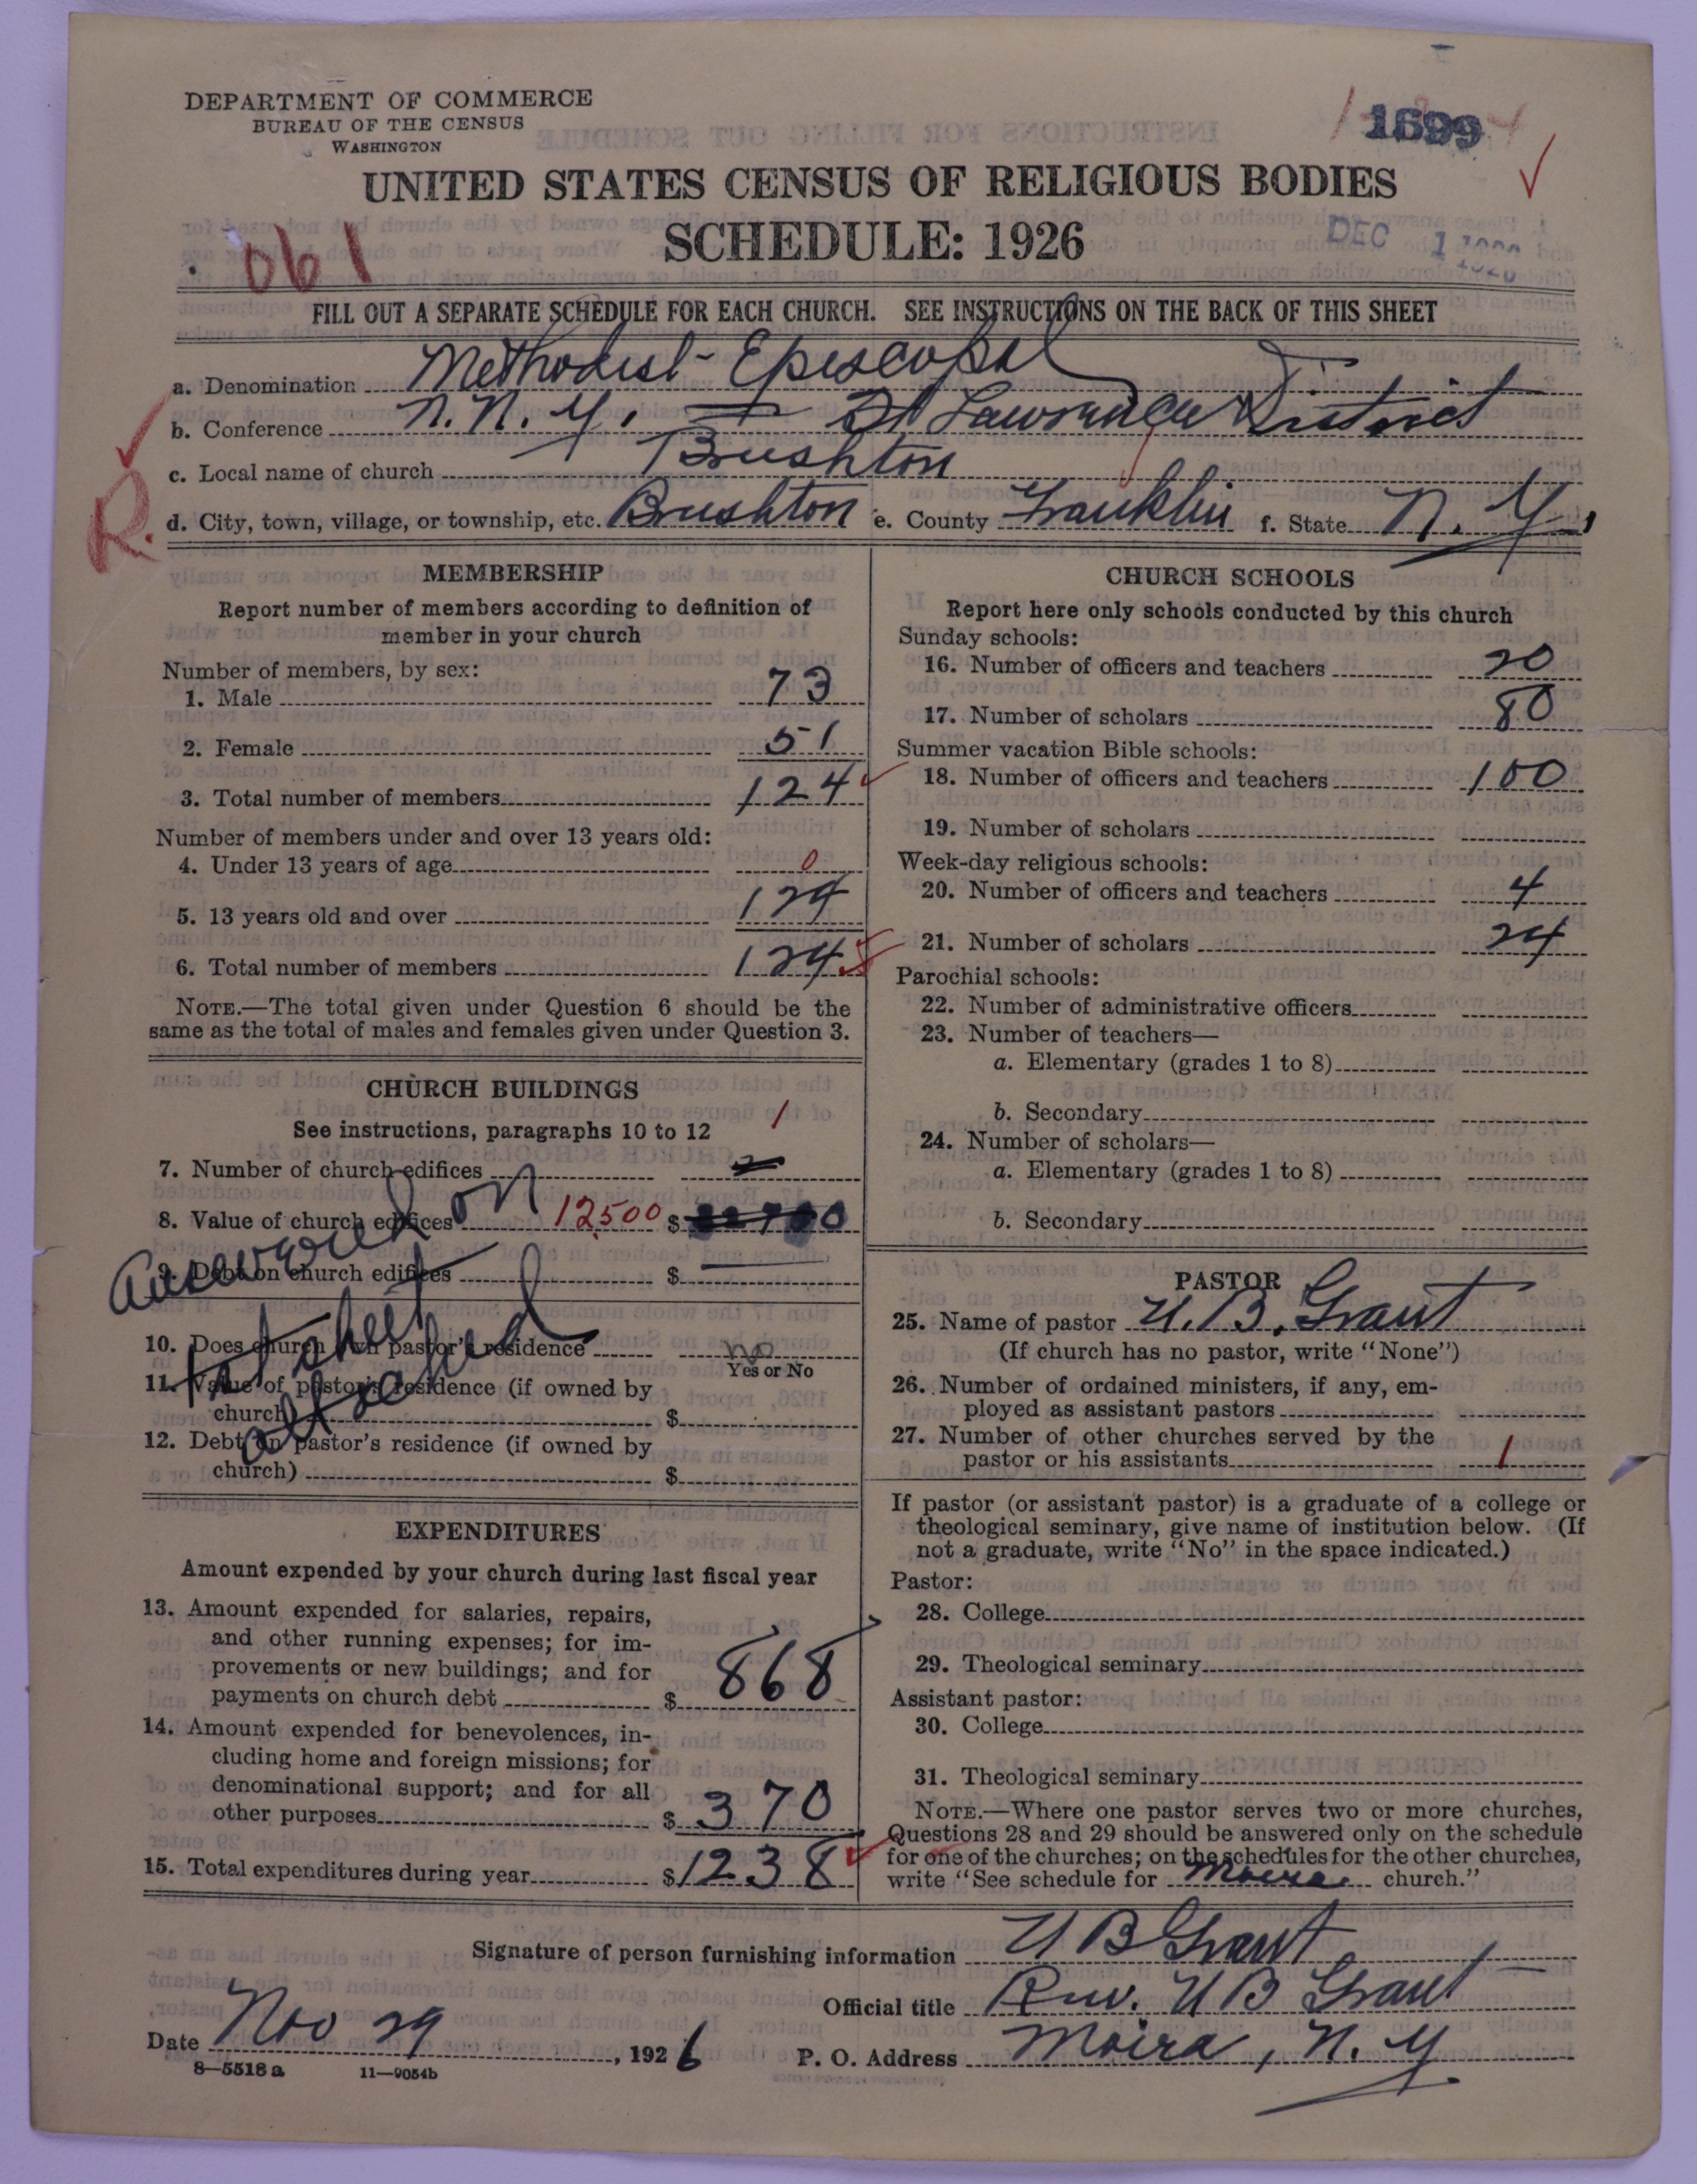 DEPARTMENT OF COMMERCE
BUREAU OF THE CENSUS
WASHINGTON
1699
UNITED STATES CENSUS OF RELIGIOUS BODIES
SCHEDULE: 1926
061
DEC 1 1926
FILL OUT A SEPARATE SCHEDULE FOR EACH CHURCH. SEE INSTRUCTIONS ON THE BACK OF THIS SHEET
a. Denomination Methodist-Episcopal
b. Conference N.N.Y. St Lawrence District
c. Local name of church Brushton
R.
d. City, town, village, or township, etc. Brushton e. County Franklin f. State N.Y.
MEMBERSHIP
Report number of members according to definition of
member in your church
Number of members, by sex:
1. Male 73
2. Female 51
3. Total number of members 124
Number of members under and over 13 years old:
4. Under 13 years of age 0
5. 13 years old and over 124
6. Total number of members 124
NOTE.—The total given under Question 6 should be the
same as the total of males and females given under Question 3.
CHURCH BUILDINGS
See instructions, paragraphs 10 to 12
1
7. Number of church edifices 2
8. Value of church edifices 12500 $
9. Debt on church edifices $
on
sheet
attached
10. Does church own pastor's residence no
Yes or No
11. Value of pastor's residence (if owned by
church) $
12. Debt on pastor's residence (if owned by
church) $
EXPENDITURES
Amount expended by your church during last fiscal year
13. Amount expended for salaries, repairs,
and other running expenses; for im-
provements or new buildings; and for
payments on church debt $ 868
14. Amount expended for benevolences, in-
cluding home and foreign missions; for
denominational support; and for all
other purposes $ 370
15. Total expenditures during year $ 1238
CHURCH SCHOOLS
Report here only schools conducted by this church
Sunday schools:
16. Number of officers and teachers 20
17. Number of scholars 80
Summer vacation Bible schools:
18. Number of officers and teachers 100
19. Number of scholars
Week-day religious schools:
20. Number of officers and teachers 4
21. Number of scholars 24
Parochial schools:
22. Number of administrative officers
23. Number of teachers—
a. Elementary (grades 1 to 8)
b. Secondary
24. Number of scholars—
a. Elementary (grades 1 to 8)
b. Secondary
PASTOR
25. Name of pastor U. B. Grant
(If church has no pastor, write "None")
26. Number of ordained ministers, if any, em-
ployed as assistant pastors
27. Number of other churches served by the
pastor or his assistants 1
If pastor (or assistant pastor) is a graduate of a college or
theological seminary, give name of institution below. (If
not a graduate, write "No" in the space indicated.)
Pastor:
28. College
29. Theological seminary
Assistant pastor:
30. College
31. Theological seminary
NOTE.—Where one pastor serves two or more churches,
Questions 28 and 29 should be answered only on the schedule
for one of the churches; on the schedules for the other churches,
write "See schedule for Moira church."
Signature of person furnishing information U B Grant
Official title Rev. U B Grant
Date Nov 29, 1926 P. O. Address Moira, N.Y
8—5518 a 11—9054b